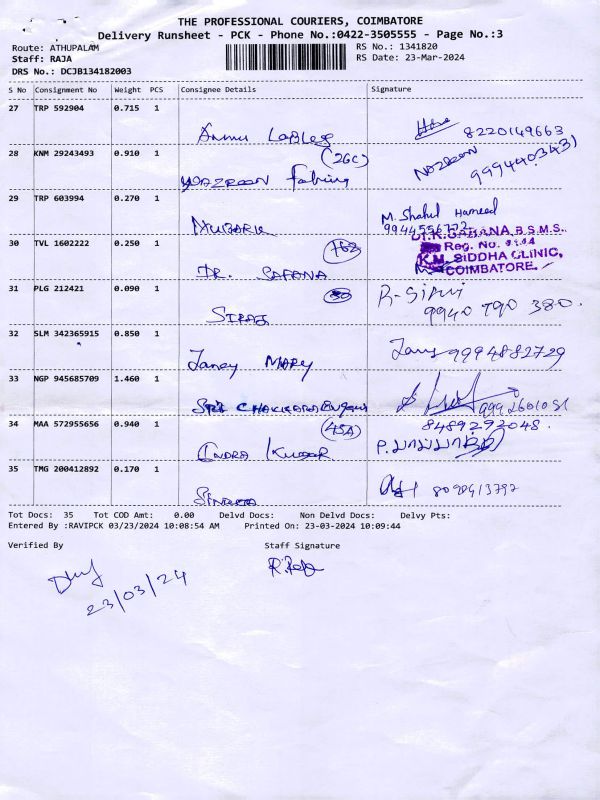 THE PROFESSIONAL COURIERS, COIMBATORE
Delivery Runsheet - PCK - Phone No.:0422-3505555 - Page No.:3
Route: ATHUPALAM
RS No.: 1341820
Staff: RAJA
RS Date: 23-Mar-2024
DRS No.: DCJB134182003
S No Consignment No Weight PCS Consignee Details Signature
27 TRP 592904 0.715 1
8220149663
28 KNM 29243493 0.910 1
(26C)
9994403431
29 TRP 603994 0.270 1
M. Shahul Hameed
MUBARK 9944556772
30 TVL 1602222 0.250 1
762
Dr.K.SABANA,B.S.M.S.,
Reg. No.
K.M. SIDDHA CLINIC,
COIMBATORE.
DR. SAFANA
31 PLG 212421 0.090 1
SIRAJ
9940 790 380.
32 SLM 342365915 0.850 1
Jancy MARY 9994882729
33 NGP 945685709 1.460 1
SRI
34 MAA 572955656 0.940 1
8489292048.
(45A)
INDRA Kumar
35 TMG 200412892 0.170 1
8098413792
Tot Docs: 35 Tot COD Amt: 0.00 Delvd Docs: Non Delvd Docs: Delvy Pts:
Entered By :RAVIPCK 03/23/2024 10:08:54 AM Printed On: 23-03-2024 10:09:44
Verified By Staff Signature
R.Raja
23/03/24